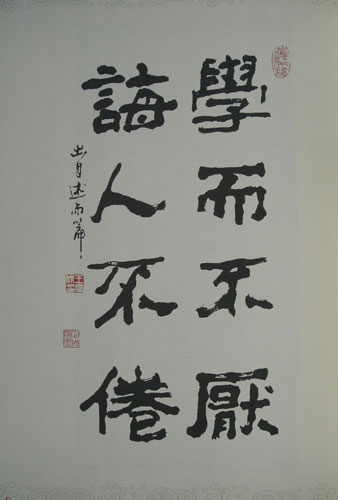 學而不厭
誨人不倦
出自述而篇